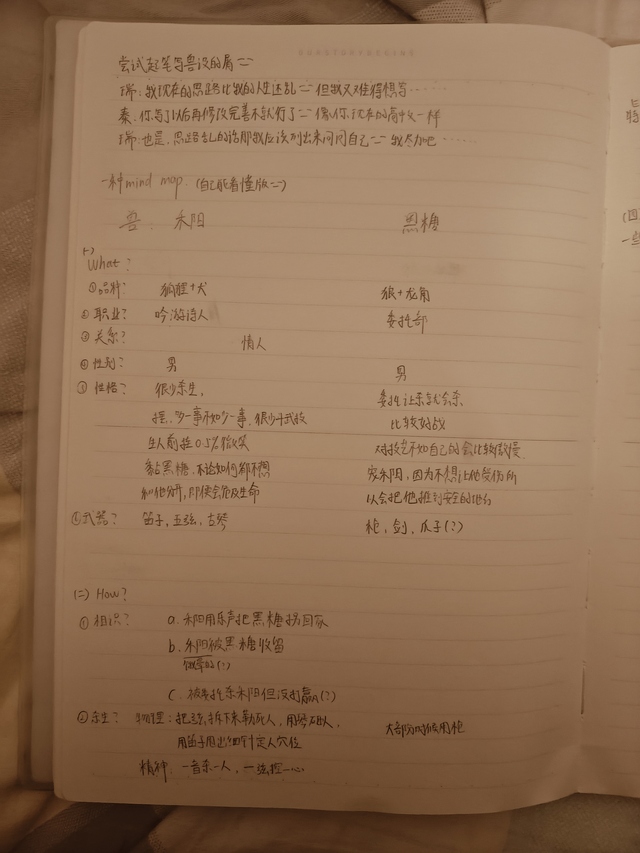 尝试起笔写兽设的屑二二
瑞:我现在的思路比我的人生还乱二二但我又难得想写……
秦:你写了以后再修改完善不就行了二二像你现在的高中文一样
瑞:也是,思路乱的话那我应该列出来问问自己二二我尽力吧……
一种mind map.(自己能看懂版二二)
兽: 禾阳 黑糖
(一)
What?
①品种? 狐狸+犬 狼+龙角
②职业? 吟游诗人 委托部
③关系? 情人
④性别? 男 男
⑤性格? 很少杀生, 委托让杀就会杀
摆,多一事不如少一事,很少干武放 比较好战
生人前挂0.5%微笑 对技艺不如自己的会比较傲慢
黏黑糖,不论如何都不想 宠禾阳,因为不想让他受伤所
和他分开,即使会危及生命 以会把他推到安全的地方
⑥武器? 笛子,五弦,古琴 枪,剑,爪子(?)
(二) How?
①相识? a.禾阳用乐声把黑糖拐回家
b.禾阳被黑糖收留
(?)
c.被委托杀禾阳但没打赢(?)
②杀生? 物理:把弦拆下来勒死人,用琴砸人, 大部分时候用枪
用笛子甩出细针定人穴位
精神:一音杀一人,一弦控一心